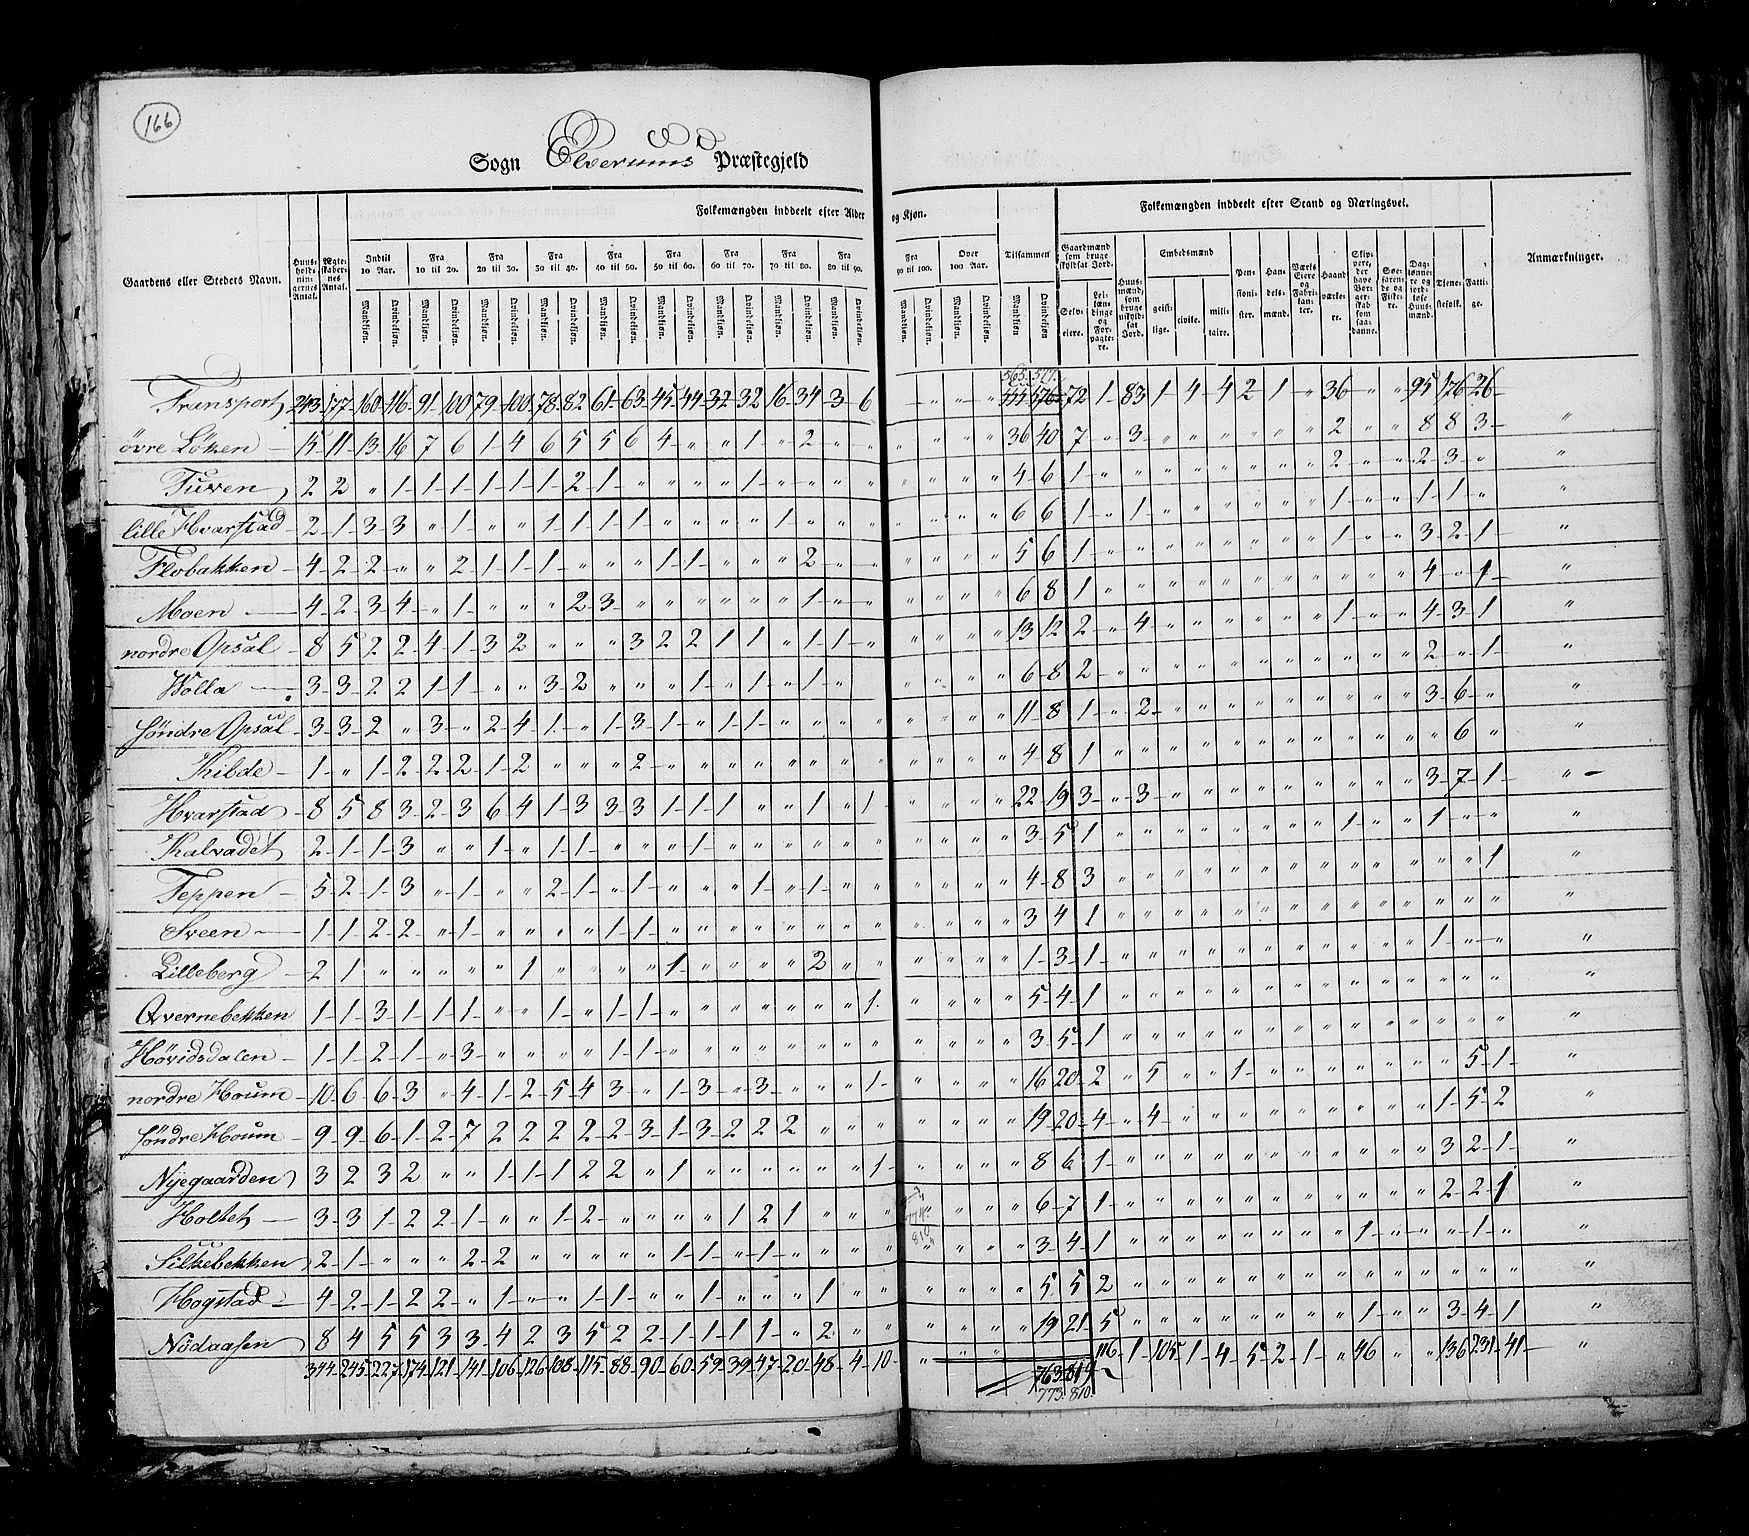 166
Sogn Elverums Præstegjeld
Folkemængden inddeelt efter Alder og Kjøn.
Folkemængden inddeelt efter Stand og Næringsvei.
Gaardens eller Stedets Navn.
Huusholdningernes Antal.
Ægteskabernes Antal.
Indtil 10 Aar.
Fra 10 til 20.
Fra 20 til 30.
Fra 30 til 40.
Fra 40 til 50.
Fra 50 til 60.
Fra 60 til 70.
Fra 70 til 80.
Fra 80 til 90.
Fra 90 til 100.
Over 100 Aar.
Tilsammen
Mandkjøn. Qvindekjøn.
Gaardmænd som bruge skyldsat Jord.
Selveiere.
Leilændinge og Forpagtere.
Huusmænd, som bruge uskyldsat Jord.
Embedsmænd
geistlige. civile. militaire.
Pensionister.
Handelsmænd.
Værks Eiere og Fabrikanter.
Haandværkere.
Skippere, der have Borgerskab som saadanne.
Søefarende og Fiskere.
Daglønnere og jordløse Huusmænd.
Tjenestefolk.
Fattige.
Anmærkninger.
565. 577.
Transport 243 177 160 116 91 100 79 100 78 82 61 63 45 44 32 32 16 34 3 6 " " " " 555 576 72 1 83 1 4 4 2 1 " 36 " " 95 176 26
øvre Løken 15 11 13 16 7 6 1 4 6 5 5 6 4 " " 1 " 2 " " " " " " 36 40 7 " 3 " " " " " " 2 " " 8 8 3 "
Tuven 2 2 " 1 1 1 1 1 1 2 1 " " " " 1 " " " " " " " " 4 6 1 " " " " " " " " 2 " " 2 3 " "
lille Hvarstad 2 1 3 3 " 1 " " 1 1 1 1 " " " " 1 " " " " " " " 6 6 1 " 1 " " " " " " 1 " " 1 1 " "
Flobakken 4 2 2 " " 2 1 1 1 " " " 1 1 " " " 2 " " " " " " 5 6 1 " " " " " " " " 1 " " 3 2 1 "
Moen 4 2 3 4 " 1 " " " 2 3 " " " " " " 1 " " " " " " 6 8 1 " " " " " " " " " " " 4 " 1 "
nordre Opsal 8 5 2 2 4 1 3 2 " " " 3 2 2 1 1 " 1 1 " " " " " 13 12 2 " 4 " " " " " " 1 " " 4 3 1 "
Wolla 3 3 2 2 1 1 " " 3 2 " " " 1 " 1 " 1 " " " " " 6 8 2 " " " " " " " " " " " 2 " 1 "
søndre Opsal 3 3 2 " 3 " 2 4 1 " 1 3 1 " 1 1 " " " " " " " " 11 8 1 " 2 " " " " " " " " " 3 6 " "
Kilde 1 " 1 2 2 2 1 2 " " " 2 " " " " " " " " " " " " 4 8 1 " " " " " " " " " " " " 6 " "
Hvarstad 8 5 8 3 2 3 6 4 1 3 3 3 1 1 1 " " 1 " 1 " " " " 22 19 3 " 3 " " " " " " " " " 3 7 1 "
Kalvadet 2 1 1 3 " " 1 " 1 1 " " " 1 " " " " " " " " " " 3 5 1 " " " " " " " " 1 " " 1 " " "
Teppen 5 2 1 3 " 1 " " 2 1 " 1 " " " 1 " 1 " " " " " " 4 8 3 " " " " " " " " " " " " " 1 "
Sveen 1 1 2 2 " 1 " " " " 1 1 " " " " " " " " " " " " 3 4 1 " " " " " " " " " " " " " " "
Lilleberg 2 1 " " " " " 1 " " " " 1 " " " " 2 " " " " " " 1 3 1 " " " " " " " " " " " 1 " " "
Qvernebekken 1 1 3 1 1 1 " " 1 " 1 1 " " " " " " " 1 " " " " 5 4 1 " " " " " " " " " " " " " " "
Høvidsdalen 1 1 2 1 " 3 " " " " 1 1 " " " " " " " " " " " " 3 5 1 " " " " " " " " " " " " " " "
nordre Houm 10 6 6 3 " 4 1 2 5 4 3 " 1 3 " 3 " " " 1 " " " " 16 20 2 " 5 " " 1 " " " " " " " 5 1 "
søndre Houm 9 9 6 1 2 7 2 2 2 2 2 3 1 3 2 2 2 " " " " " " " 19 20 4 " 4 " " " " " " " " " 1 5 2
Nyegaarden 3 2 3 2 " " 1 1 1 2 2 " 1 " " " " " " 1 " " " " 8 6 1 " " " " " " " " " " " 3 2 1 "
Holtet 3 3 1 2 2 1 " " 1 2 " " " " 1 2 1 " " " " " " " 6 7 1 " " " " " " " " " " " 2 2 1 "
Silkebekken 2 1 " " " 2 2 " " " " " 1 1 " 1 " " " " " " " " 3 4 1 " " " " " " " " 1 " " " 1 " "
Hogstad 4 2 1 2 2 " 1 " " 1 1 " " 1 " " " 1 " " " " " " 5 5 2 " " " " " " " " " " " " " " "
Nödaasen 8 4 5 5 3 3 4 2 3 5 2 2 1 1 1 1 " 2 " " " " " " 19 21 5 " " " " " " " " 1 " " 3 4 1 "
344 245 227 174 121 141 106 126 108 115 88 90 60 59 39 47 20 48 4 10 " 763 819 116 1 105 1 4 5 2 1 " 46 " " 136 231 41
773. 810.